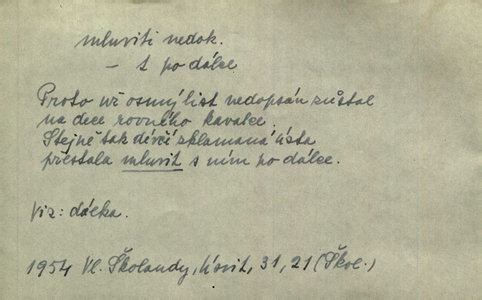 mluviti nedok.
– s po dálce
Proto už osmý list nedopsán zůstal
na dece rovného kavalce.
Stejně tak dívčí zklamaná ústa
přestala mluvit s ním po dálce.
Viz: dálka.
1954 Vl. Školaudy, Úsvit, 31, 21 (Škol.)